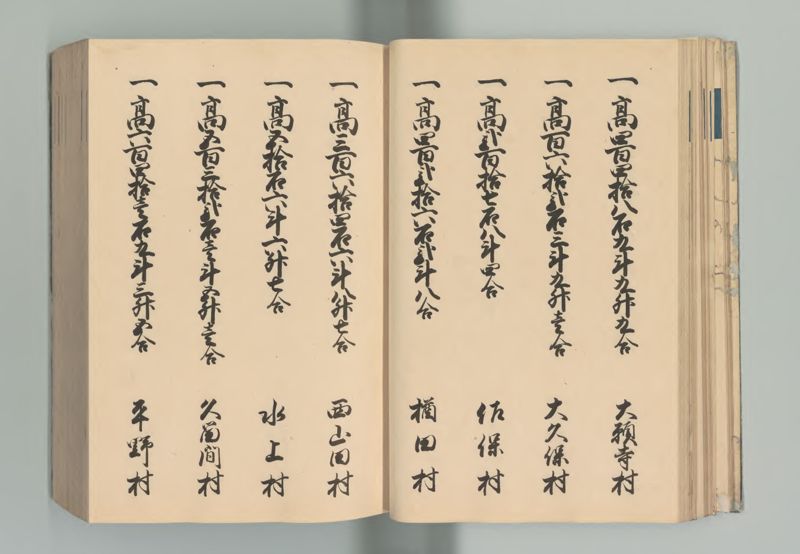 一高四百四拾八石九斗九升九合 大願寺村
一高百六拾弐石三斗九升壱合 大久保村
一高弐百拾七石八斗四合 佐保村
一高四百弐拾六石弐斗八合 楢田村
一高三百六拾四石六斗八升七合 西山田村
一高五拾石六斗六升七合 水上村
一高五百三拾弐石壱斗五升壱合 久留間村
一高六百四拾壱石九斗三升五合 平野村